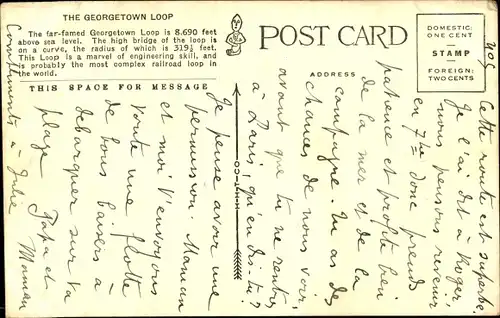 THE GEORGETOWN LOOP
The far-famed Georgetown Loop is 8.690 feet
above sea level. The high bridge of the loop is
on a curve, the radius of which is 319½ feet.
This Loop is a marvel of engineering skill, and
is probably the most complex railroad loop in
the world.
THIS SPACE FOR MESSAGE
POST CARD
ADDRESS
DOMESTIC:
ONE CENT
STAMP
FOREIGN:
TWO CENTS
Cette route est superbe.
Je l'ai dit à Roger,
nous pensons revenir
en 7bre donc prends
patience et profite bien
de la mer et de la
campagne. Tu as des
chances de nous voir
avant que tu ne rentres
à Paris, qu'en dis-tu?
Je pense avoir une
permission. Maman
et moi t'envoyons
toute une flotte
de bons baisers à
débarquer sur ta
plage
Papa et
Maman
Compliments à Julie